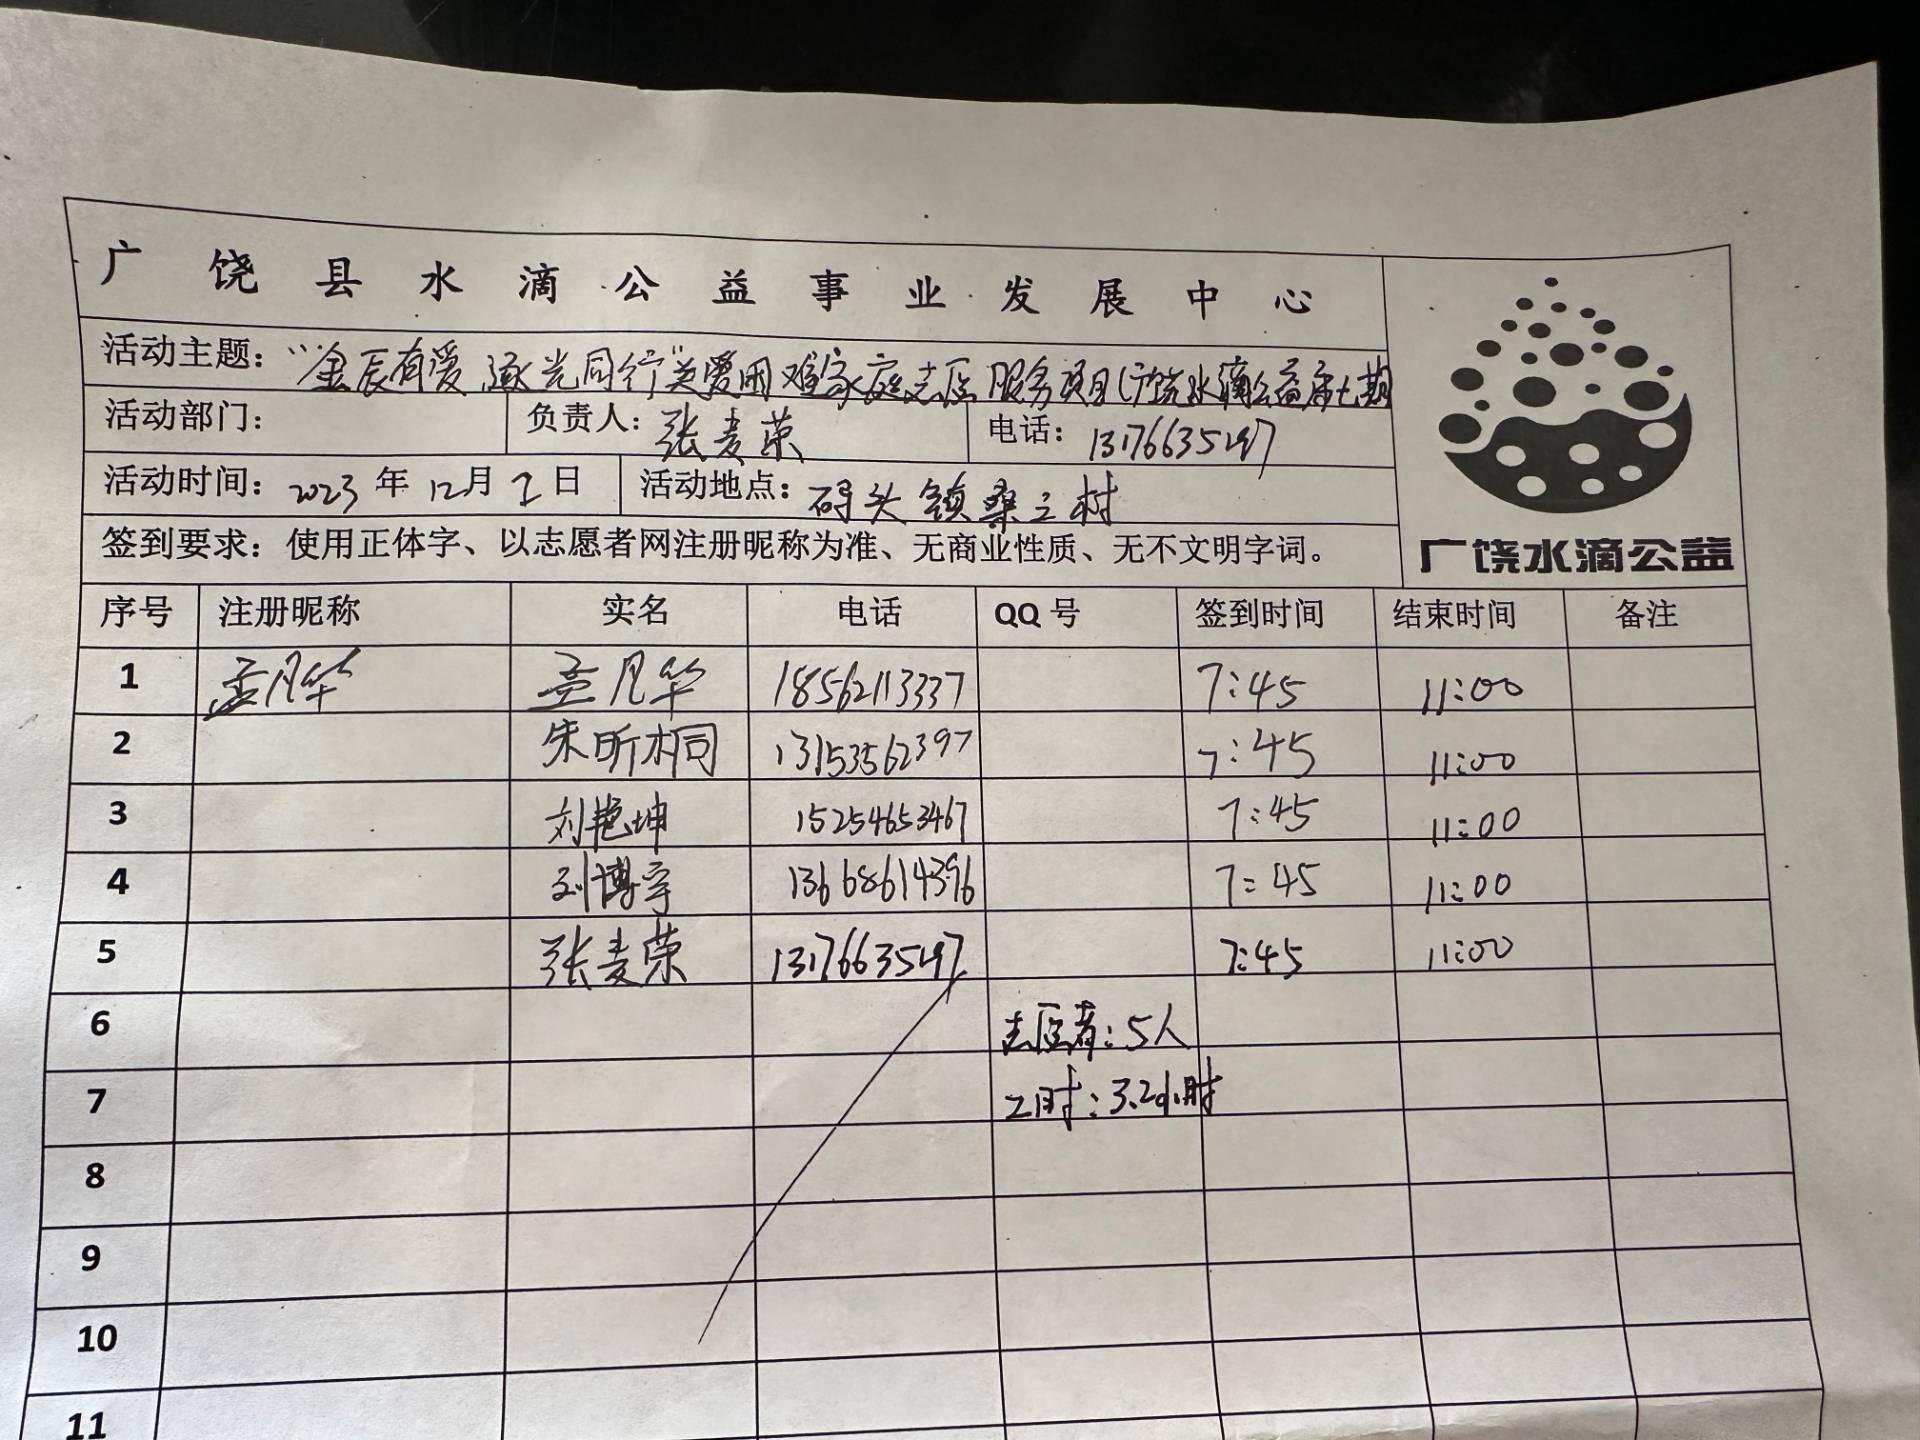 广饶县水滴公益事业发展中心
活动主题：“金辰有爱 逐光同行”关爱困难家庭志愿服务项目(广饶水滴公益启七期
活动部门： 负责人：张麦荣 电话：13176635197
活动时间：2023年12月2日 活动地点：码头镇桑三村
签到要求：使用正体字、以志愿者网注册昵称为准、无商业性质、无不文明字词。
广饶水滴公益
序号 注册昵称 实名 电话 QQ号 签到时间 结束时间 备注
1 孟凡华 孟凡华 18562113337 7:45 11:00
2 朱昕桐 13153562397 7:45 11:00
3 刘艳坤 15254653467 7:45 11:00
4 刘博宇 13668614396 7:45 11:00
5 张麦荣 13176635197 7:45 11:00
6 志愿者：5人
7 工时：3.2小时
8
9
10
11